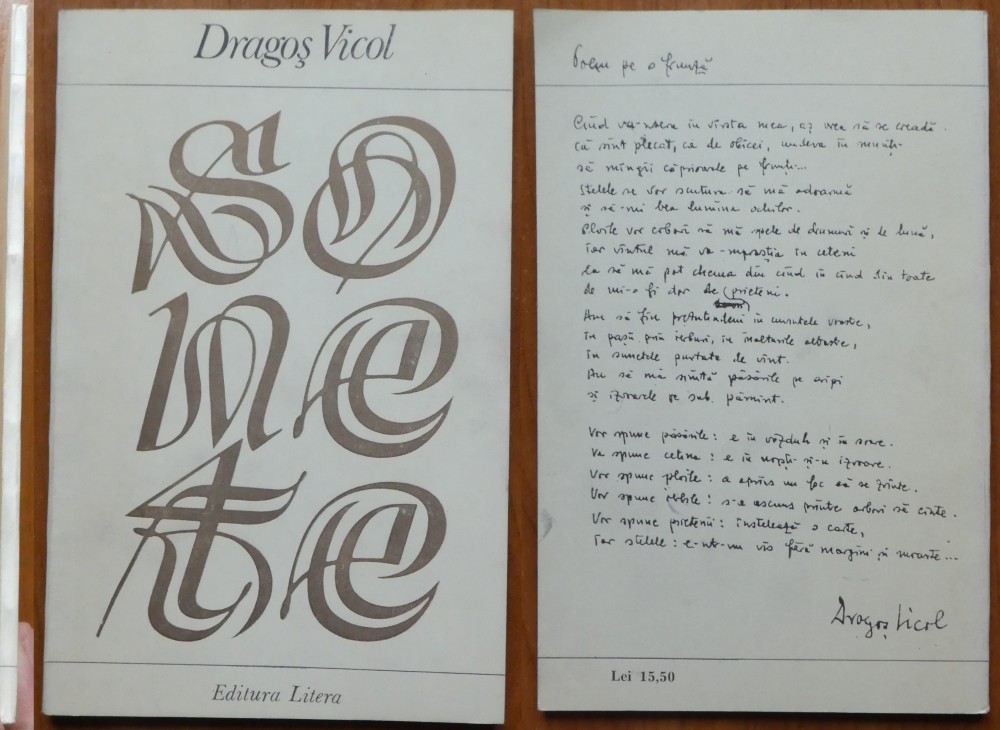 Dragoș Vicol
SO
NE
TE
Editura Litera
Poem pe o frunză
Cînd va-nsera în vîrsta mea, aș vrea să se creadă
că sînt plecat, ca de obicei, undeva în munți-
să mîngîi căprioarele pe frunți...
Stelele se vor scutura să mă adoarmă
și să-mi bea lumina ochilor.
Ploile vor coborî să mă spele de drumuri și de lună,
iar vîntul mă va-mprăștia in cetini
ca să mă pot chema din cînd în cînd din toate
de mi-o fi dor de prieteni.
Am să fiu pretutindeni în
în pașii prin ierburi, în înalturile albastre,
în sunetele purtate de vînt.
Au să mă simtă păsările pe aripi
și izvoarele pe sub pămînt.
Vor spune păsările: e în văzduh și în soare.
Va spune cetina: e în nopți și-n izvoare.
Vor spune ploile: a aprins un foc să se zvînte.
Vor spune ierbile: s-a ascuns printre arbori să cînte.
Vor spune prietenii: înstelează o carte,
iar stelele: e-ntr-un vis fără margini și moarte...
Dragoș Vicol
Lei 15,50